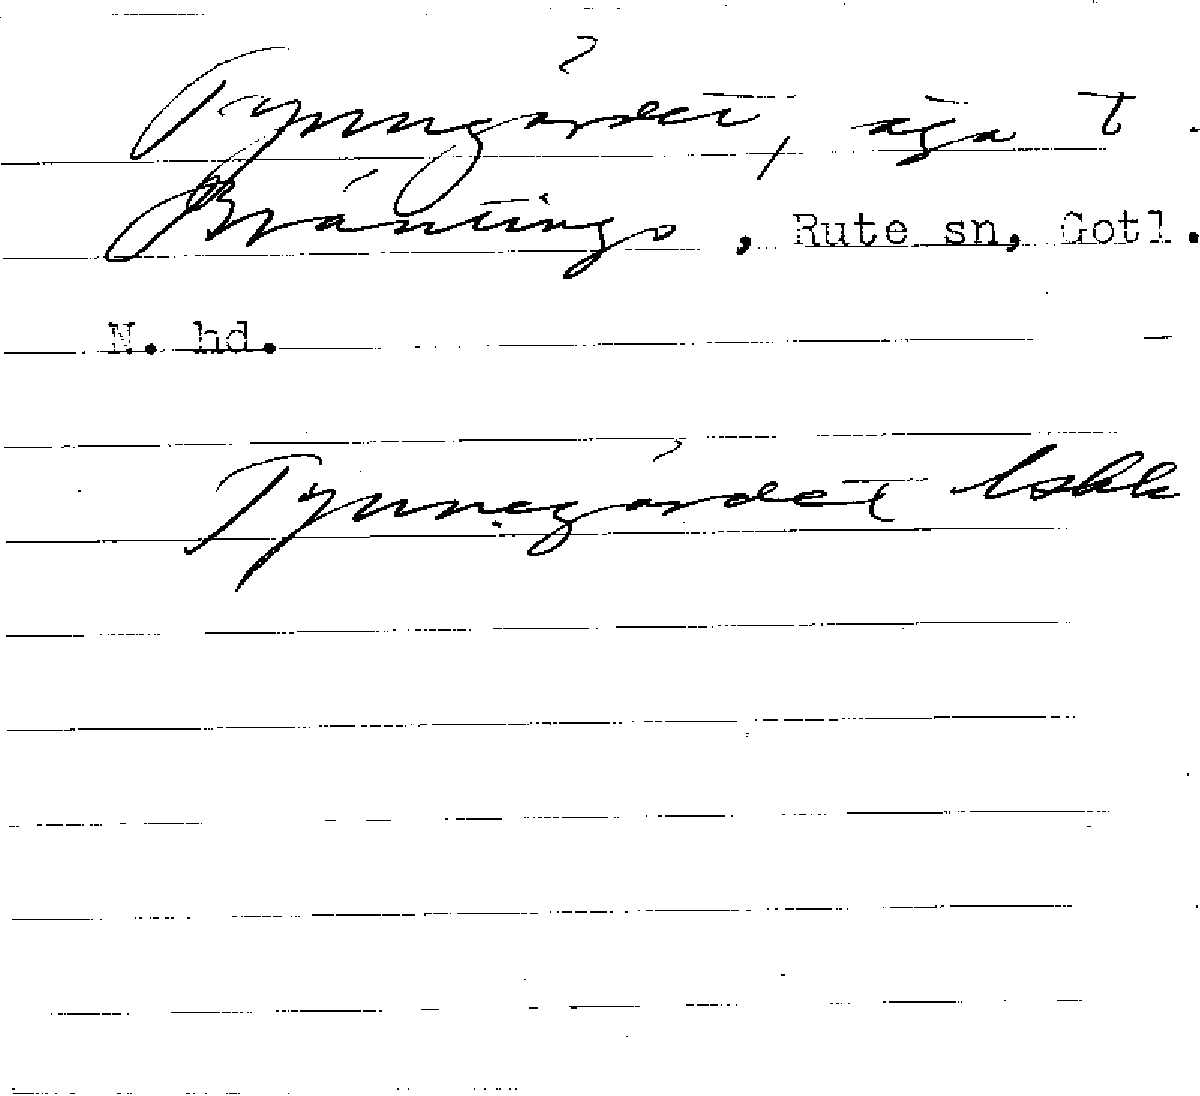 Tynngårdet, äga t.
Bräntings, Rute sn, Gotl.
N. hd.
Tynnegårdet Lskk